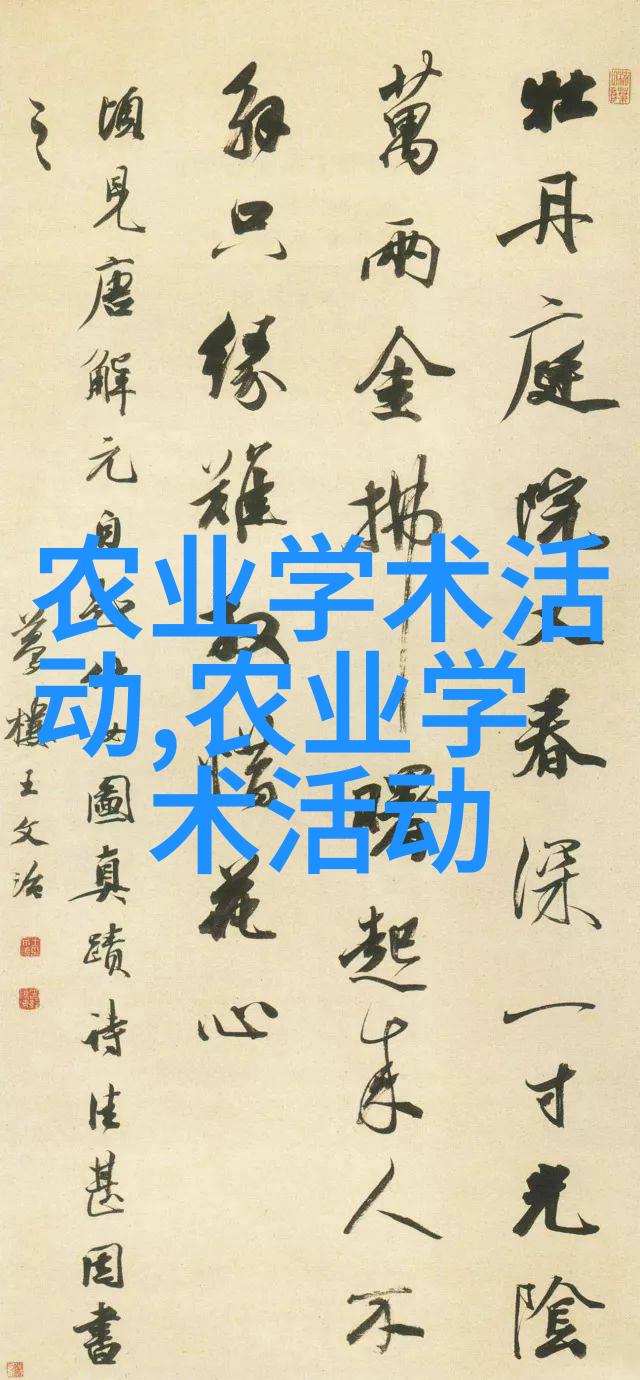 牡丹庭院又春深一寸光陰
萬兩金拂曙起來人不
解只緣難放惜花心
頃見唐解元自仕女圖真蹟詩佳甚因書
之
夢樓王文治
农业学术活
动,农业学
术活动